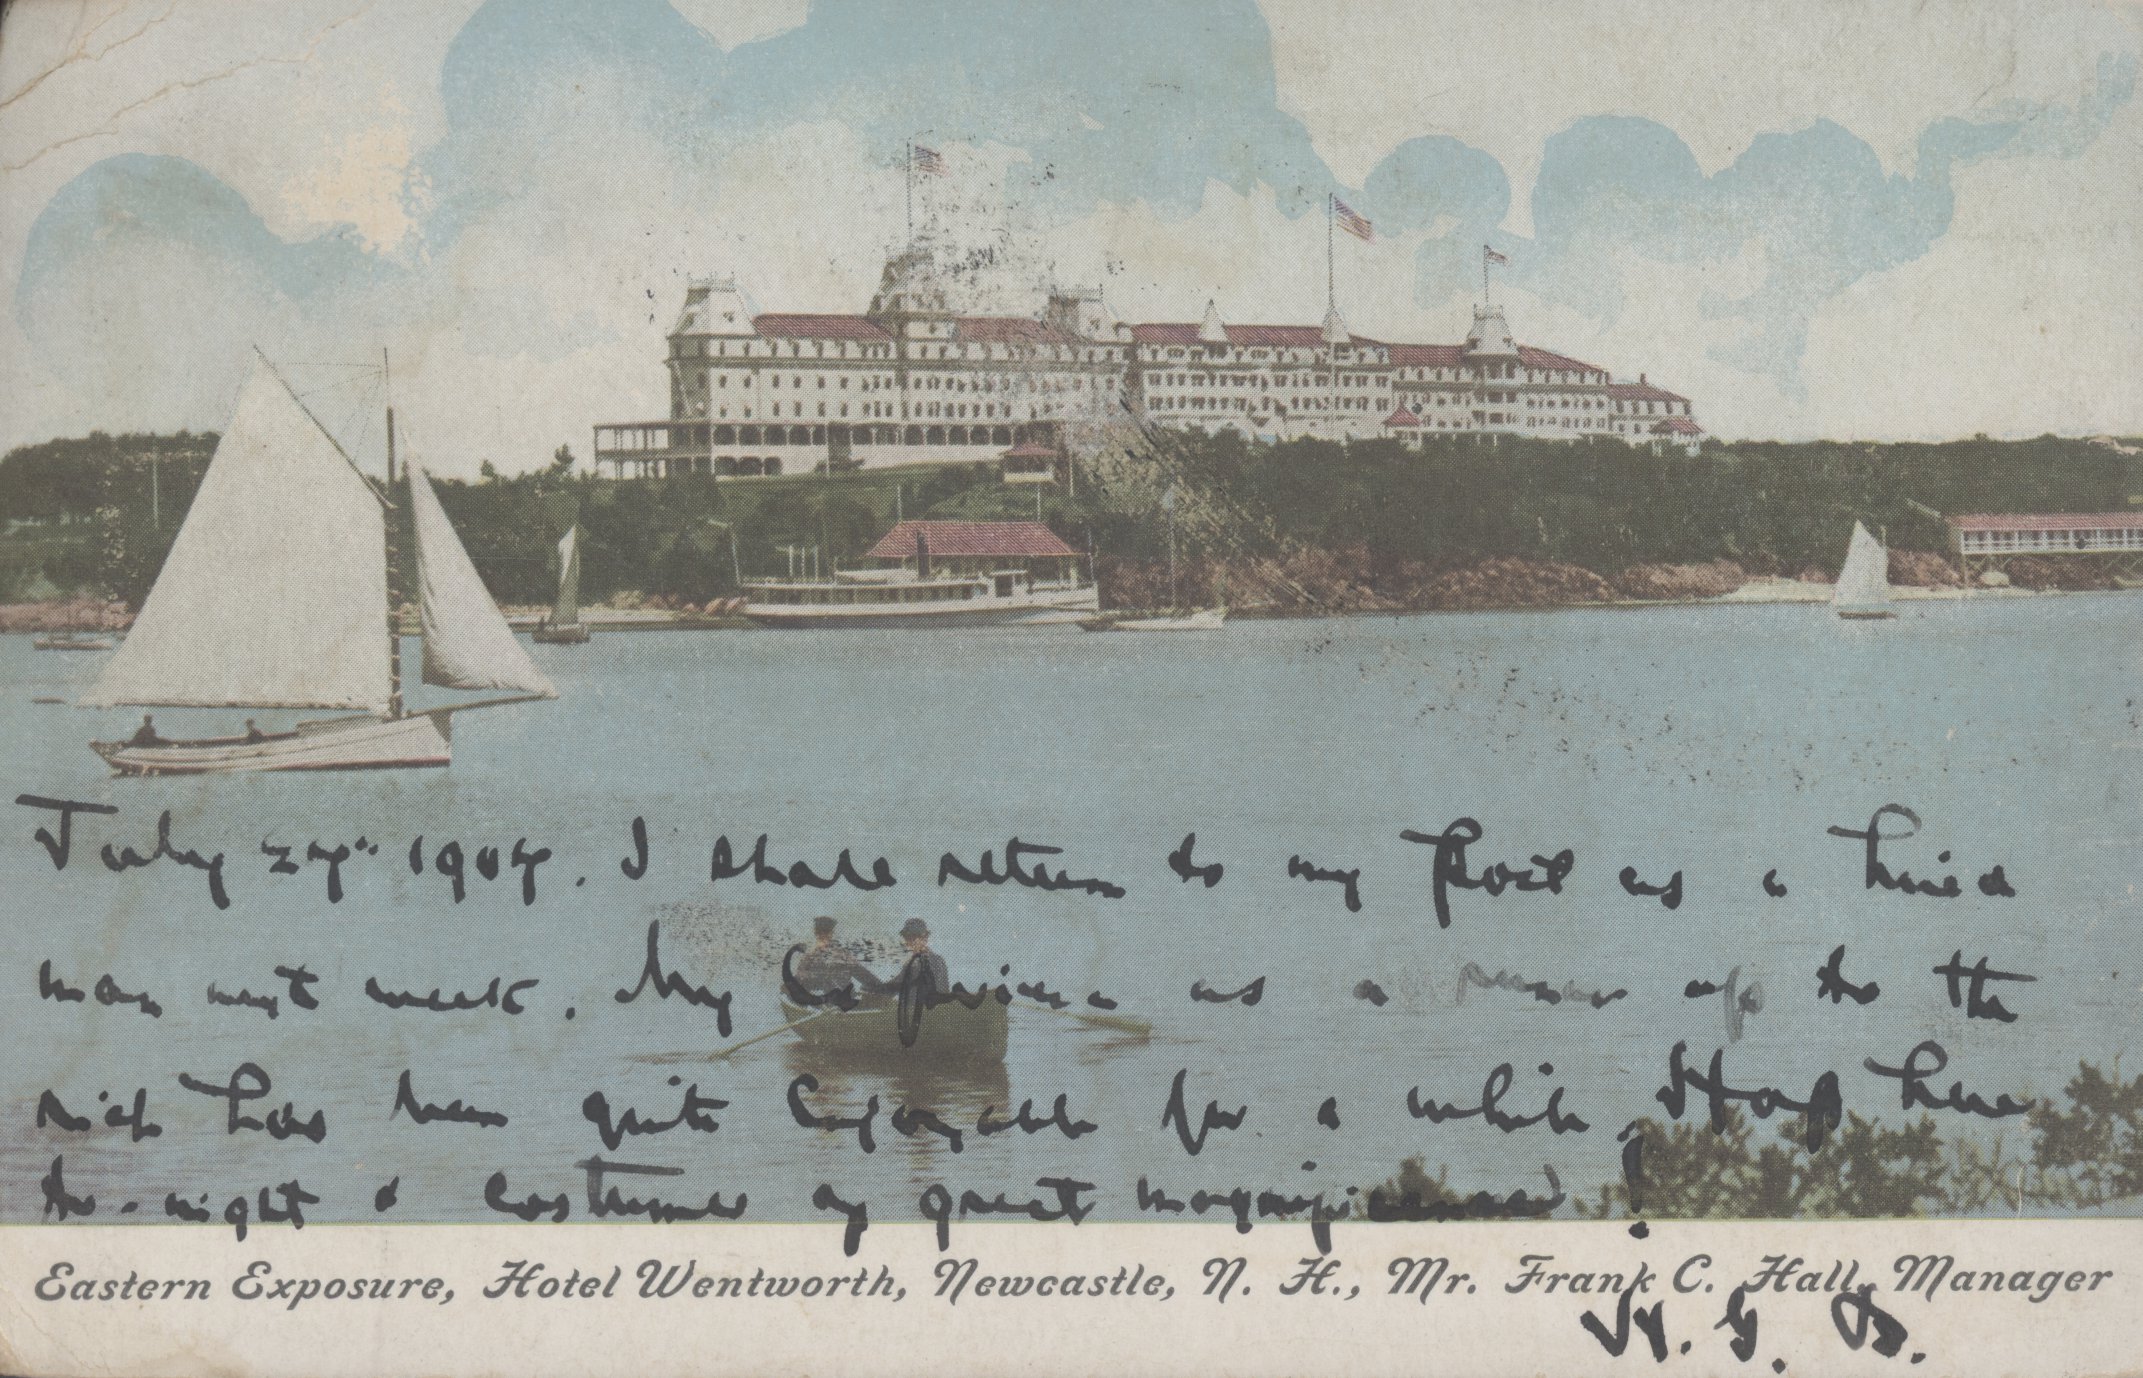 July 27" 1907. I shall return to my post as a hired
man next week. My experience as a runner up to the
rich has been quite enjoyable for a while. Hop here
to-night & costumes of great magnificence!
Eastern Exposure, Hotel Wentworth, Newcastle, N. H., Mr. Frank C. Hall, Manager
W. G. B.